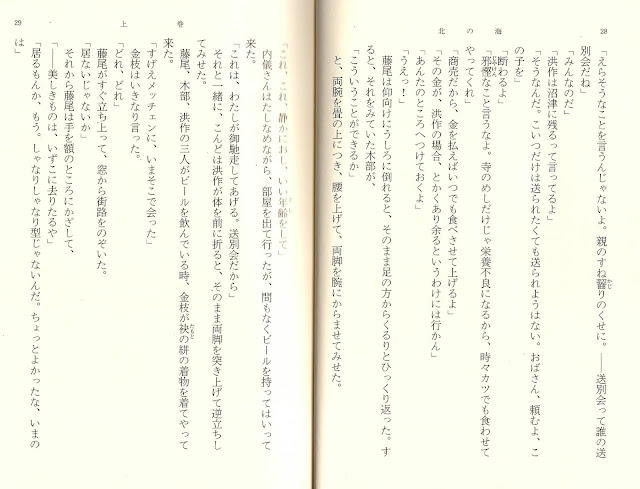 28
北の海
「えらそうなことを言うんじゃないよ。親のすね齧りのくせに。――送別会って誰の送
別会だね」
「みんなのだ」
「洪作は沼津に残るって言ってるよ」
「そうなんだ。こいつだけは送られたくても送られようはない。おばさん、頼むよ、こ
の子を」
「断わるよ」
「邪慳なこと言うなよ。寺のめしだけじゃ栄養不良になるから、時々カツでも食わせて
やってくれ」
「商売だから、金を払えばいつでも食べさせて上げるよ」
「その金が、洪作の場合、とかくあり余るというわけには行かん」
「あんたのところへつけておくよ」
「うえっ！」
藤尾は仰向けにうしろに倒れると、そのまま足の方からくるりとひっくり返った。す
ると、それをみていた木部が、
「こういうことができるか」
と、両腕を畳の上につき、腰を上げて、両脚を腕にからませてみせた。
29
上巻
「これ、これ、静かにおし、いい年齢をして」
内儀さんはたしなめながら、部屋を出て行ったが、間もなくビールを持ってはいって
来た。
「これは、わたしが御馳走してあげる。送別会だから」
それと一緒に、こんどは洪作が体を前に折ると、そのまま両脚を突き上げて逆立ちし
てみせた。
藤尾、木部、洪作の三人がビールを飲んでいる時、金枝が袂の絣の着物を着てやって
来た。
「すげえメッチェンに、いまそこで会った」
金枝はいきなり言った。
「どれ、どれ」
藤尾がすぐ立ち上って、窓から街路をのぞいた。
「居ないじゃないか」
それから藤尾は手を額のところにかざして、
「――美しきものは、いずこに去りたるや」
「居るもんか、もう。しゃなりしゃなり型じゃないんだ。ちょっとよかったな、いまの
は」